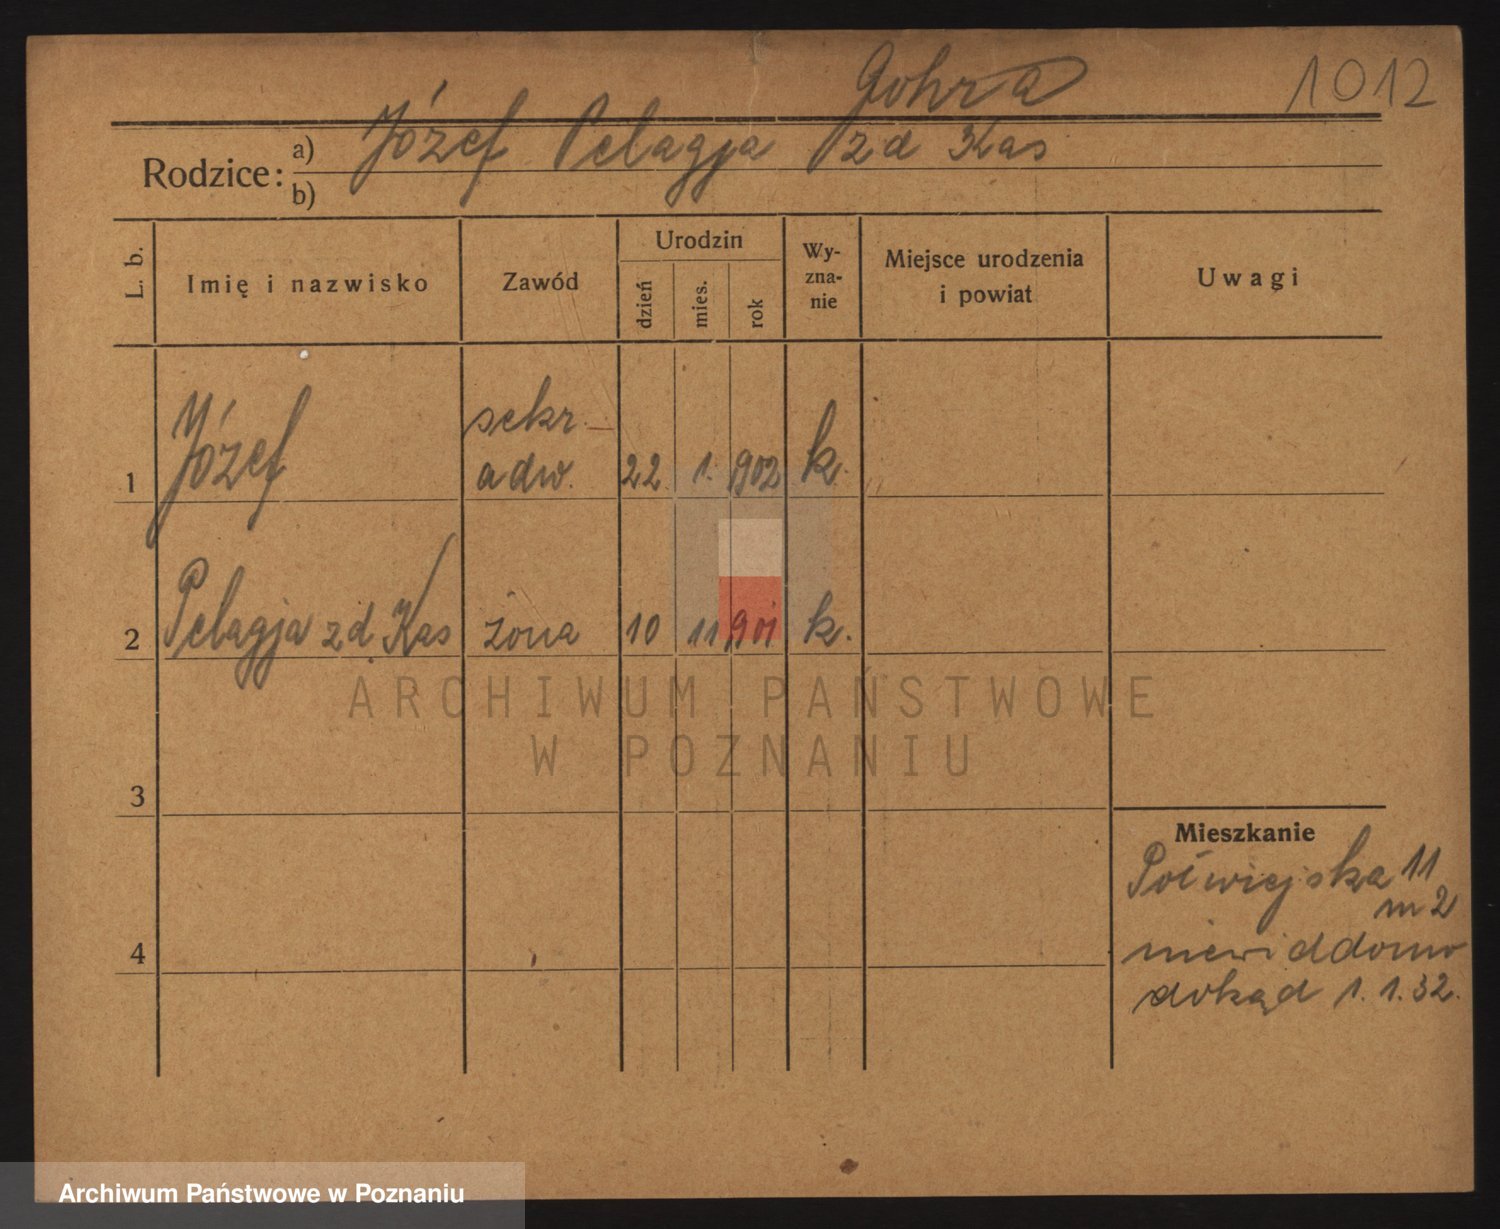 Gohra 1012
Rodzice: a) Józef Pelagja zd Kas
b)
L. b. Imię i nazwisko Zawód Urodzin dzień mies. rok Wy-zna-nie Miejsce urodzenia i powiat Uwagi
1 Józef sekr. adw. 22 1. 902 k.
2 Pelagja zd. Kas żona 10 11 901 k.
ARCHIWUM PAŃSTWOWE
W POZNANIU
3
Mieszkanie
Połwiejska 11
m 2
4 niewiddomo
dokąd 1. 1. 32.
Archiwum Państwowe w Poznaniu